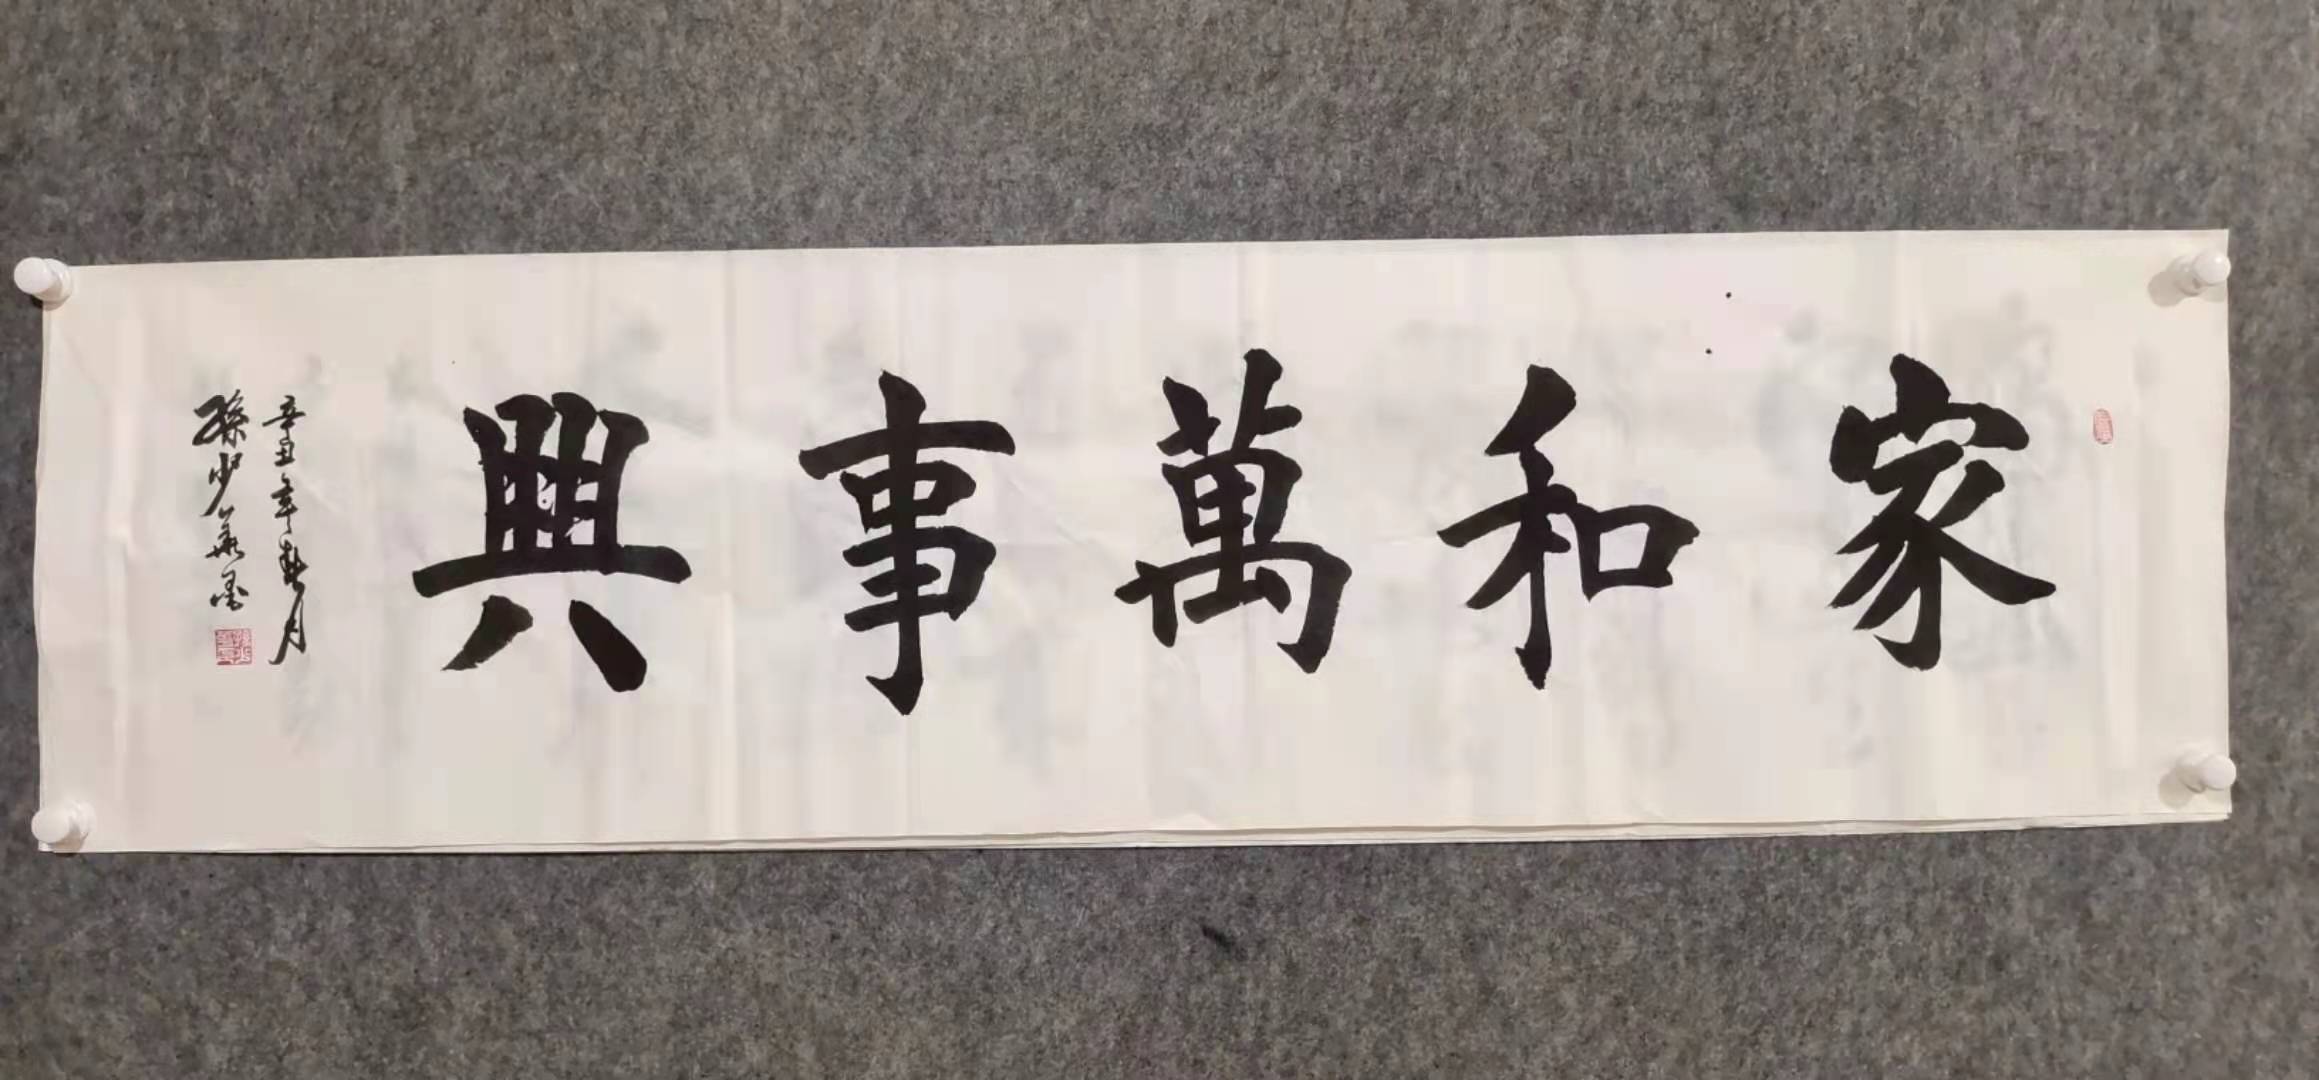 家和萬事興
辛丑年春月
孫少華墨